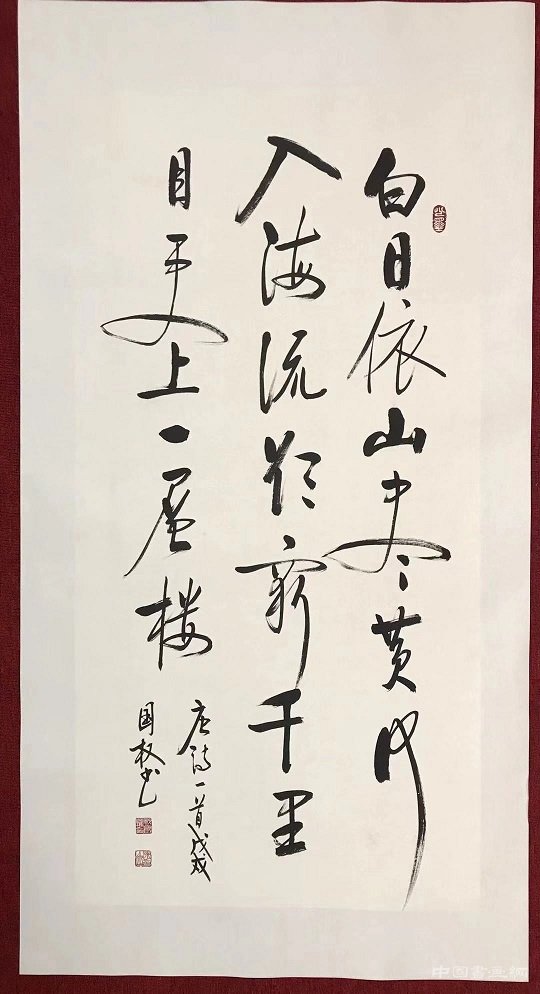 白日依山尽黄河
入海流欲穷千里
目更上一层楼
唐诗一首戊戌
国权书
中国书画网